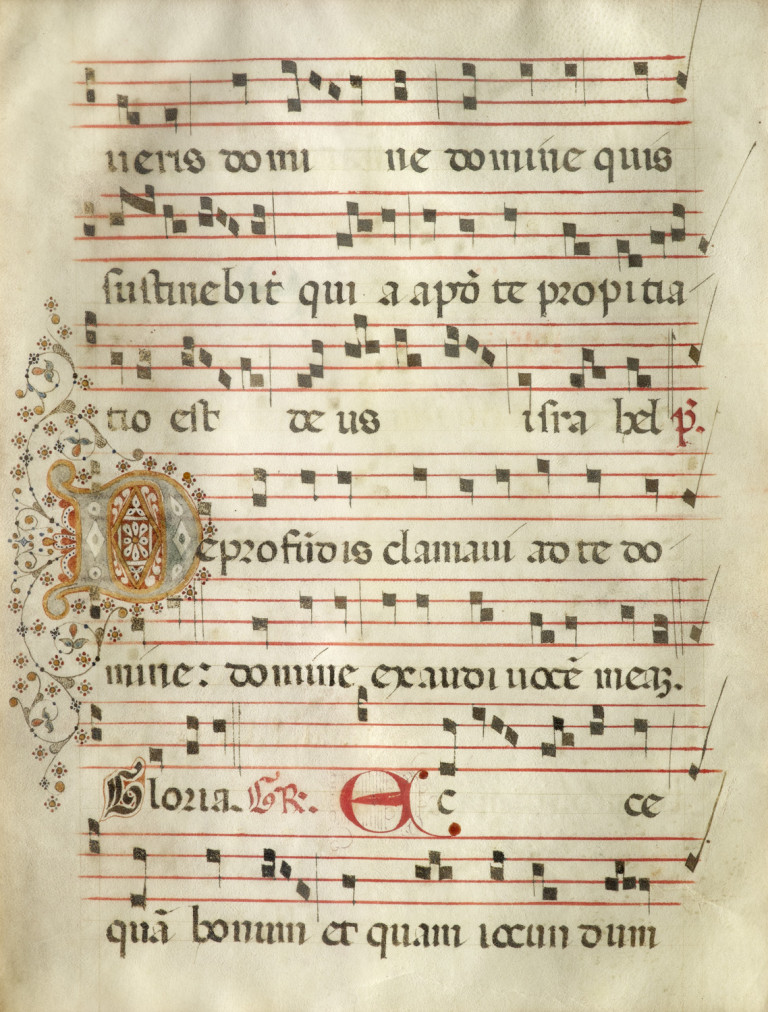 ueris domi ne domine quis
sustinebit qui a apđ te propitia
tio est de us isra hel p̃.
De profūdis clamaui ad te do
mine: domine exaudi uocē meaʒ.
Gloria. GR. Ec ce
quā bonum et quam iocun dum